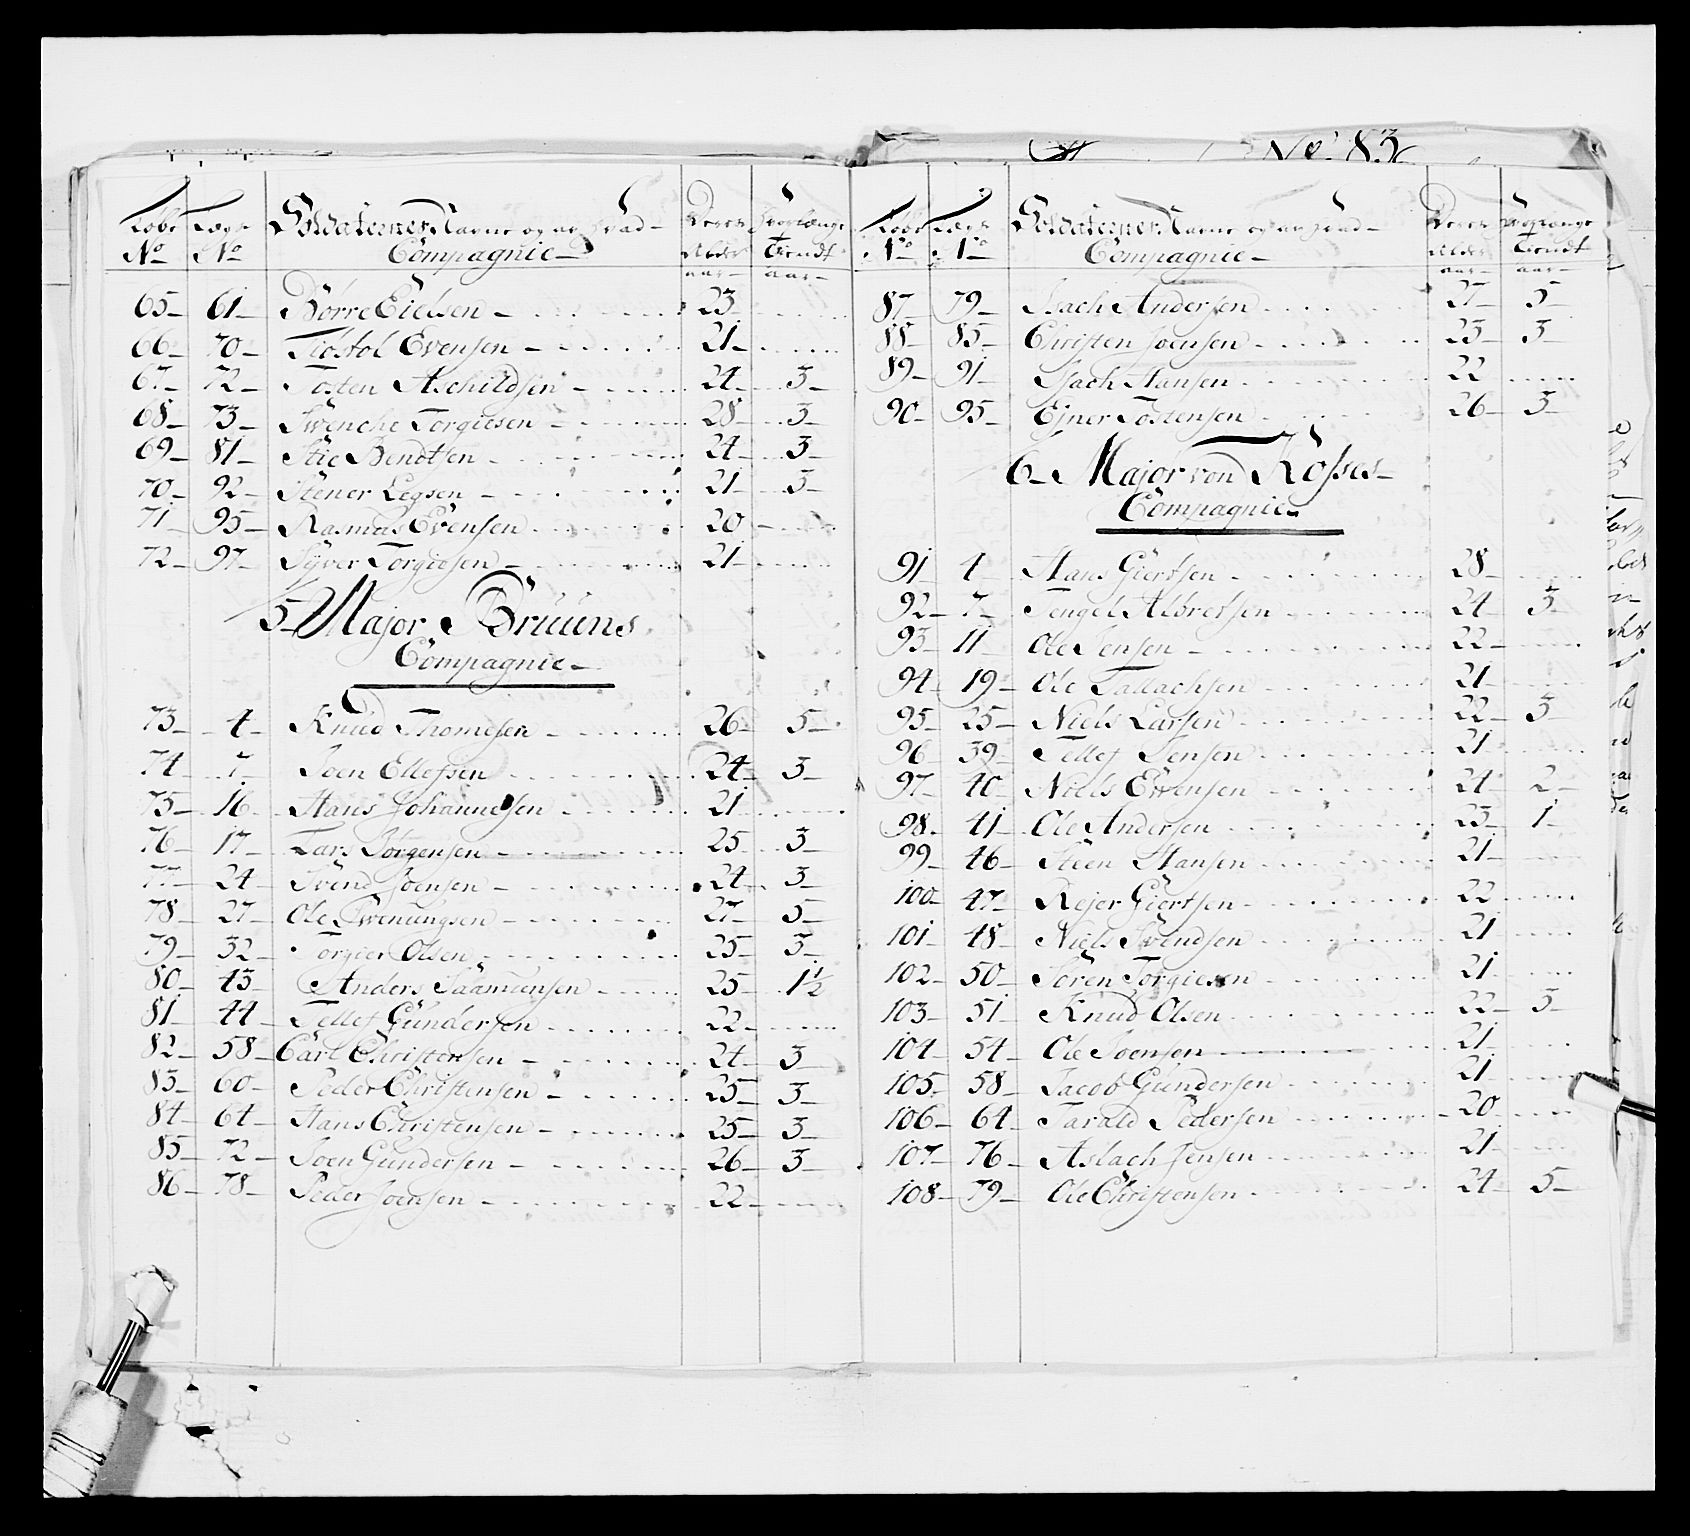 Löbe Lægs Soldaternes Navne og af hvad Deres Hvorlænge
No No Compagnie Alder tiendt
aar aar
65 61 Börre Eielsen 23
66 70 Tiöstol Evensen 21
67 72 Tosten Aschildsen 24 3
68 73 Svenche Torgiesen 28 3
69 81 Stie Bendtsen 24 3
70 92 Stener Legsen 21 3
71 95 Rasmus Evensen 20
72 97 Syver Torgiesen 21
5 Major Bruuns
Compagnie
73 4 Knud Thomesen 26 5
74 7 Joen Ellefsen 24 3
75 16 Hans Johannesen 21
76 17 Lars Jörgensen 25 3
77 24 Svend Joensen 24 3
78 27 Ole Svenungsen 27 5
79 32 Torgier Olsen 25 3
80 43 Anders Saamuensen 25 1½
81 44 Tellef Gundersen 22
82 58 Carl Christensen 24 3
83 60 Peder Christensen 25 3
84 64 Hans Christensen 25 3
85 72 Joen Gundersen 26 3
86 78 Peder Joensen 22
No. 83
Löbe Lægs Soldaternes Navne og af hvad Deres Hvorlænge
No No Compagnie Alder tiendt
aar aar
87 79 Isach Andersen 27 5
88 85 Christen Joensen 23 3
89 91 Isach Hansen 22
90 95 Ejner Tostensen 26 3
6 Major von Kosses
Compagnie
91 4 Hans Giertsen 28
92 7 Tengel Albretsen 24 3
93 11 Ole Jensen 22
94 19 Ole Tallachsen 21
95 25 Niels Larsen 22 3
96 39 Tellef Jensen 21
97 40 Niels Evensen 24 2
98 41 Ole Andersen 23 1
99 46 Steen Hansen 21
100 47 Rejer Giertsen 22
101 48 Niels Svendsen 21
102 50 Sören Torgiesen 21
103 51 Knud Olsen 22 3
104 54 Ole Joensen 21
105 58 Jacob Gundersen 21
106 64 Tarald Pedersen 20
107 76 Aslach Jensen 21
108 79 Ole Christensen 24 5